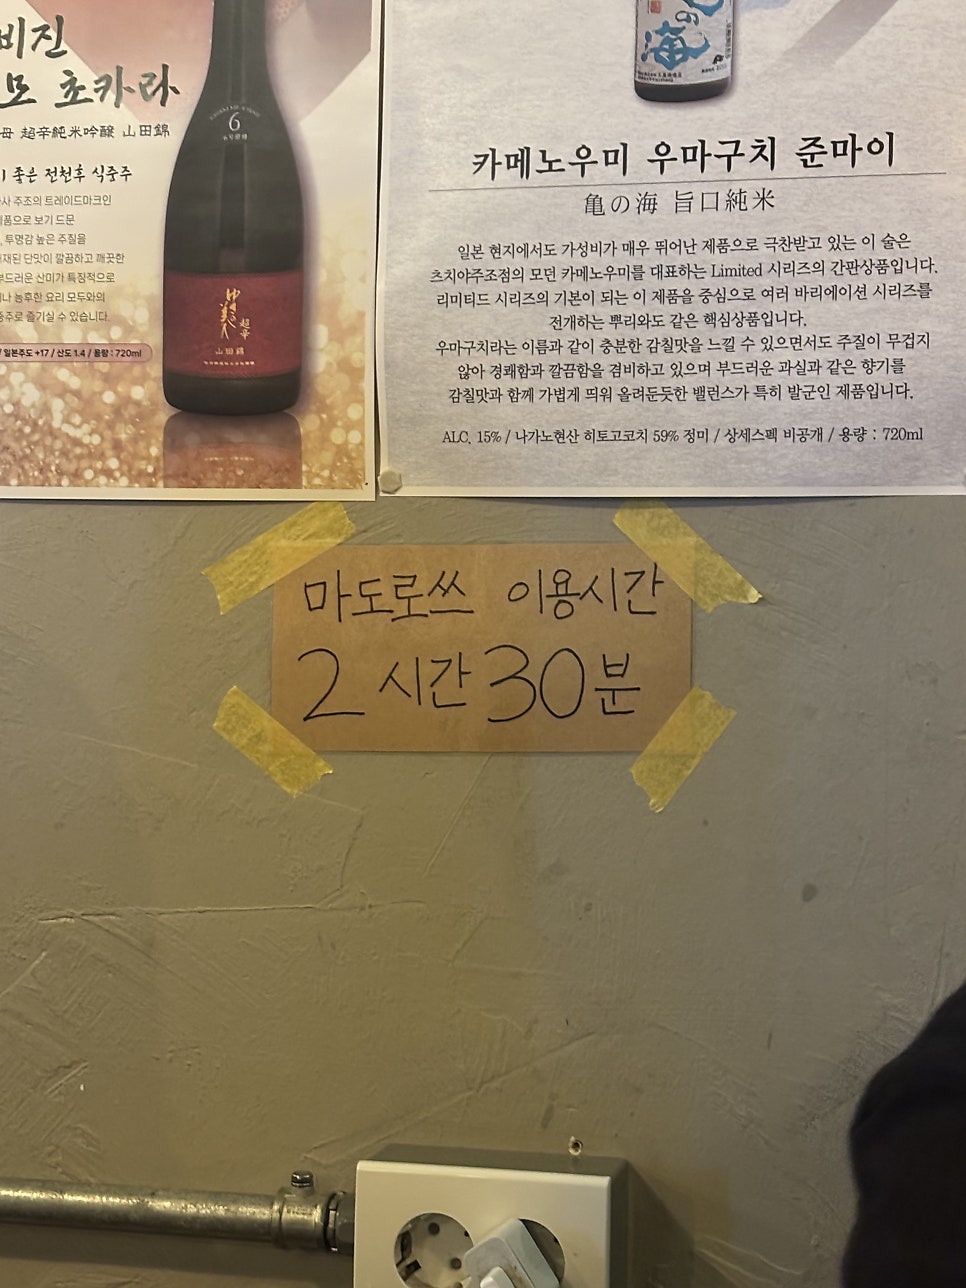 비진
모 초카라
母 超辛純米吟醸 山田錦
좋은 전천후 식중주
사 주조의 트레이드마크인
제품으로 보기 드문
투명감 높은 주질을
내재된 단맛이 깔끔하고 깨끗한
부드러운 산미가 특징적으로
나 농후한 요리 모두와의
중주로 즐기실 수 있습니다.
/ 일본주도 +17 / 산도 1.4 / 용량 : 720ml
6
超辛
山田錦
の海
카메노우미 우마구치 준마이
亀の海 旨口純米
일본 현지에서도 가성비가 매우 뛰어난 제품으로 극찬받고 있는 이 술은
츠치야주조점의 모던 카메노우미를 대표하는 Limited 시리즈의 간판상품입니다.
리미티드 시리즈의 기본이 되는 이 제품을 중심으로 여러 바리에이션 시리즈를
전개하는 뿌리와도 같은 핵심상품입니다.
우마구치라는 이름과 같이 충분한 감칠맛을 느낄 수 있으면서도 주질이 무겁지
않아 경쾌함과 깔끔함을 겸비하고 있으며 부드러운 과실과 같은 향기를
감칠맛과 함께 가볍게 띄워 올려둔듯한 밸런스가 특히 발군인 제품입니다.
ALC. 15% / 나가노현산 히토고코치 59% 정미 / 상세스펙 비공개 / 용량 : 720ml
마도로쓰 이용시간
2 시간 30분